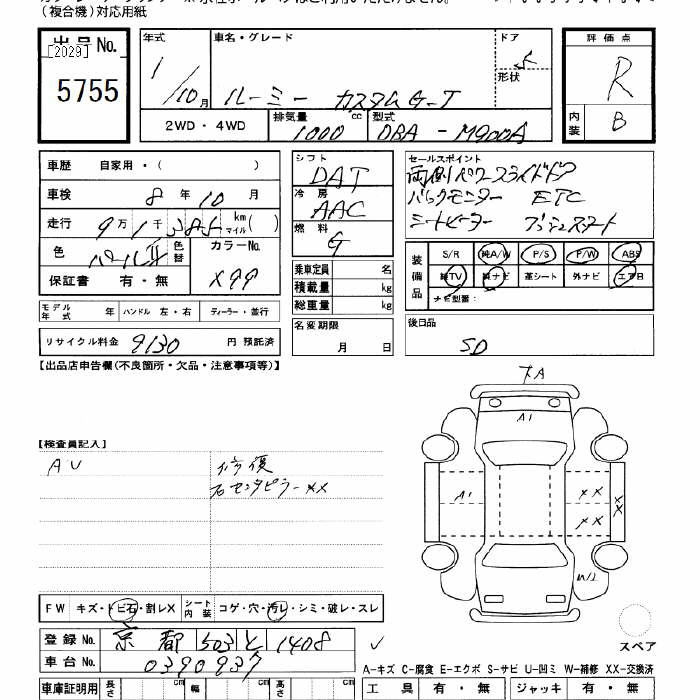 (複合機)対応用紙
出品No.
[2029]
5755
年式
1/10月
車名・グレード
ルーミー カスタムG-T
ドア
5
形状
評価点
R
内装
B
2WD・4WD
排気量
1000cc
型式
DBA-M900A
車歴 自家用・( )
車検 8年10月
走行 9万1千385km マイル( )
色 パールII 色替 カラーNo.
X99
保証書 有・無
モデル年式 年 ハンドル 左・右 ディーラー・並行
リサイクル料金 9130円 預託済
シフト
DAT
冷房
AAC
燃料
G
乗車定員 名
積載量 kg
総重量 kg
名変期限
月 日
セールスポイント
両側パワースライドドア
バックモニター ETC
シートヒーター プッシュスタート
装備品
S/R 純A/W P/S P/W ABS
純TV 純ナビ 革シート 外ナビ エアB
ナモ型番:
後日品
SD
【出品店申告欄(不良箇所・欠品・注意事項等)】
【検査員記入】
AU
修復
右センタピラーXX
下A
A1
A1
XX
XX
XX
W2
FW キズ・トビ石・割レX
シート内装 コゲ・穴・汚レ・シミ・破レ・スレ
登録No. 京都 503 と 1408
車台No. 0390937
スペア
A-キズ C-腐食 E-エクボ S-サビ U-凹ミ W-補修 XX-交換済
車庫証明用 長さ cm 幅 cm 高さ cm
工具 有・無 ジャッキ 有・無